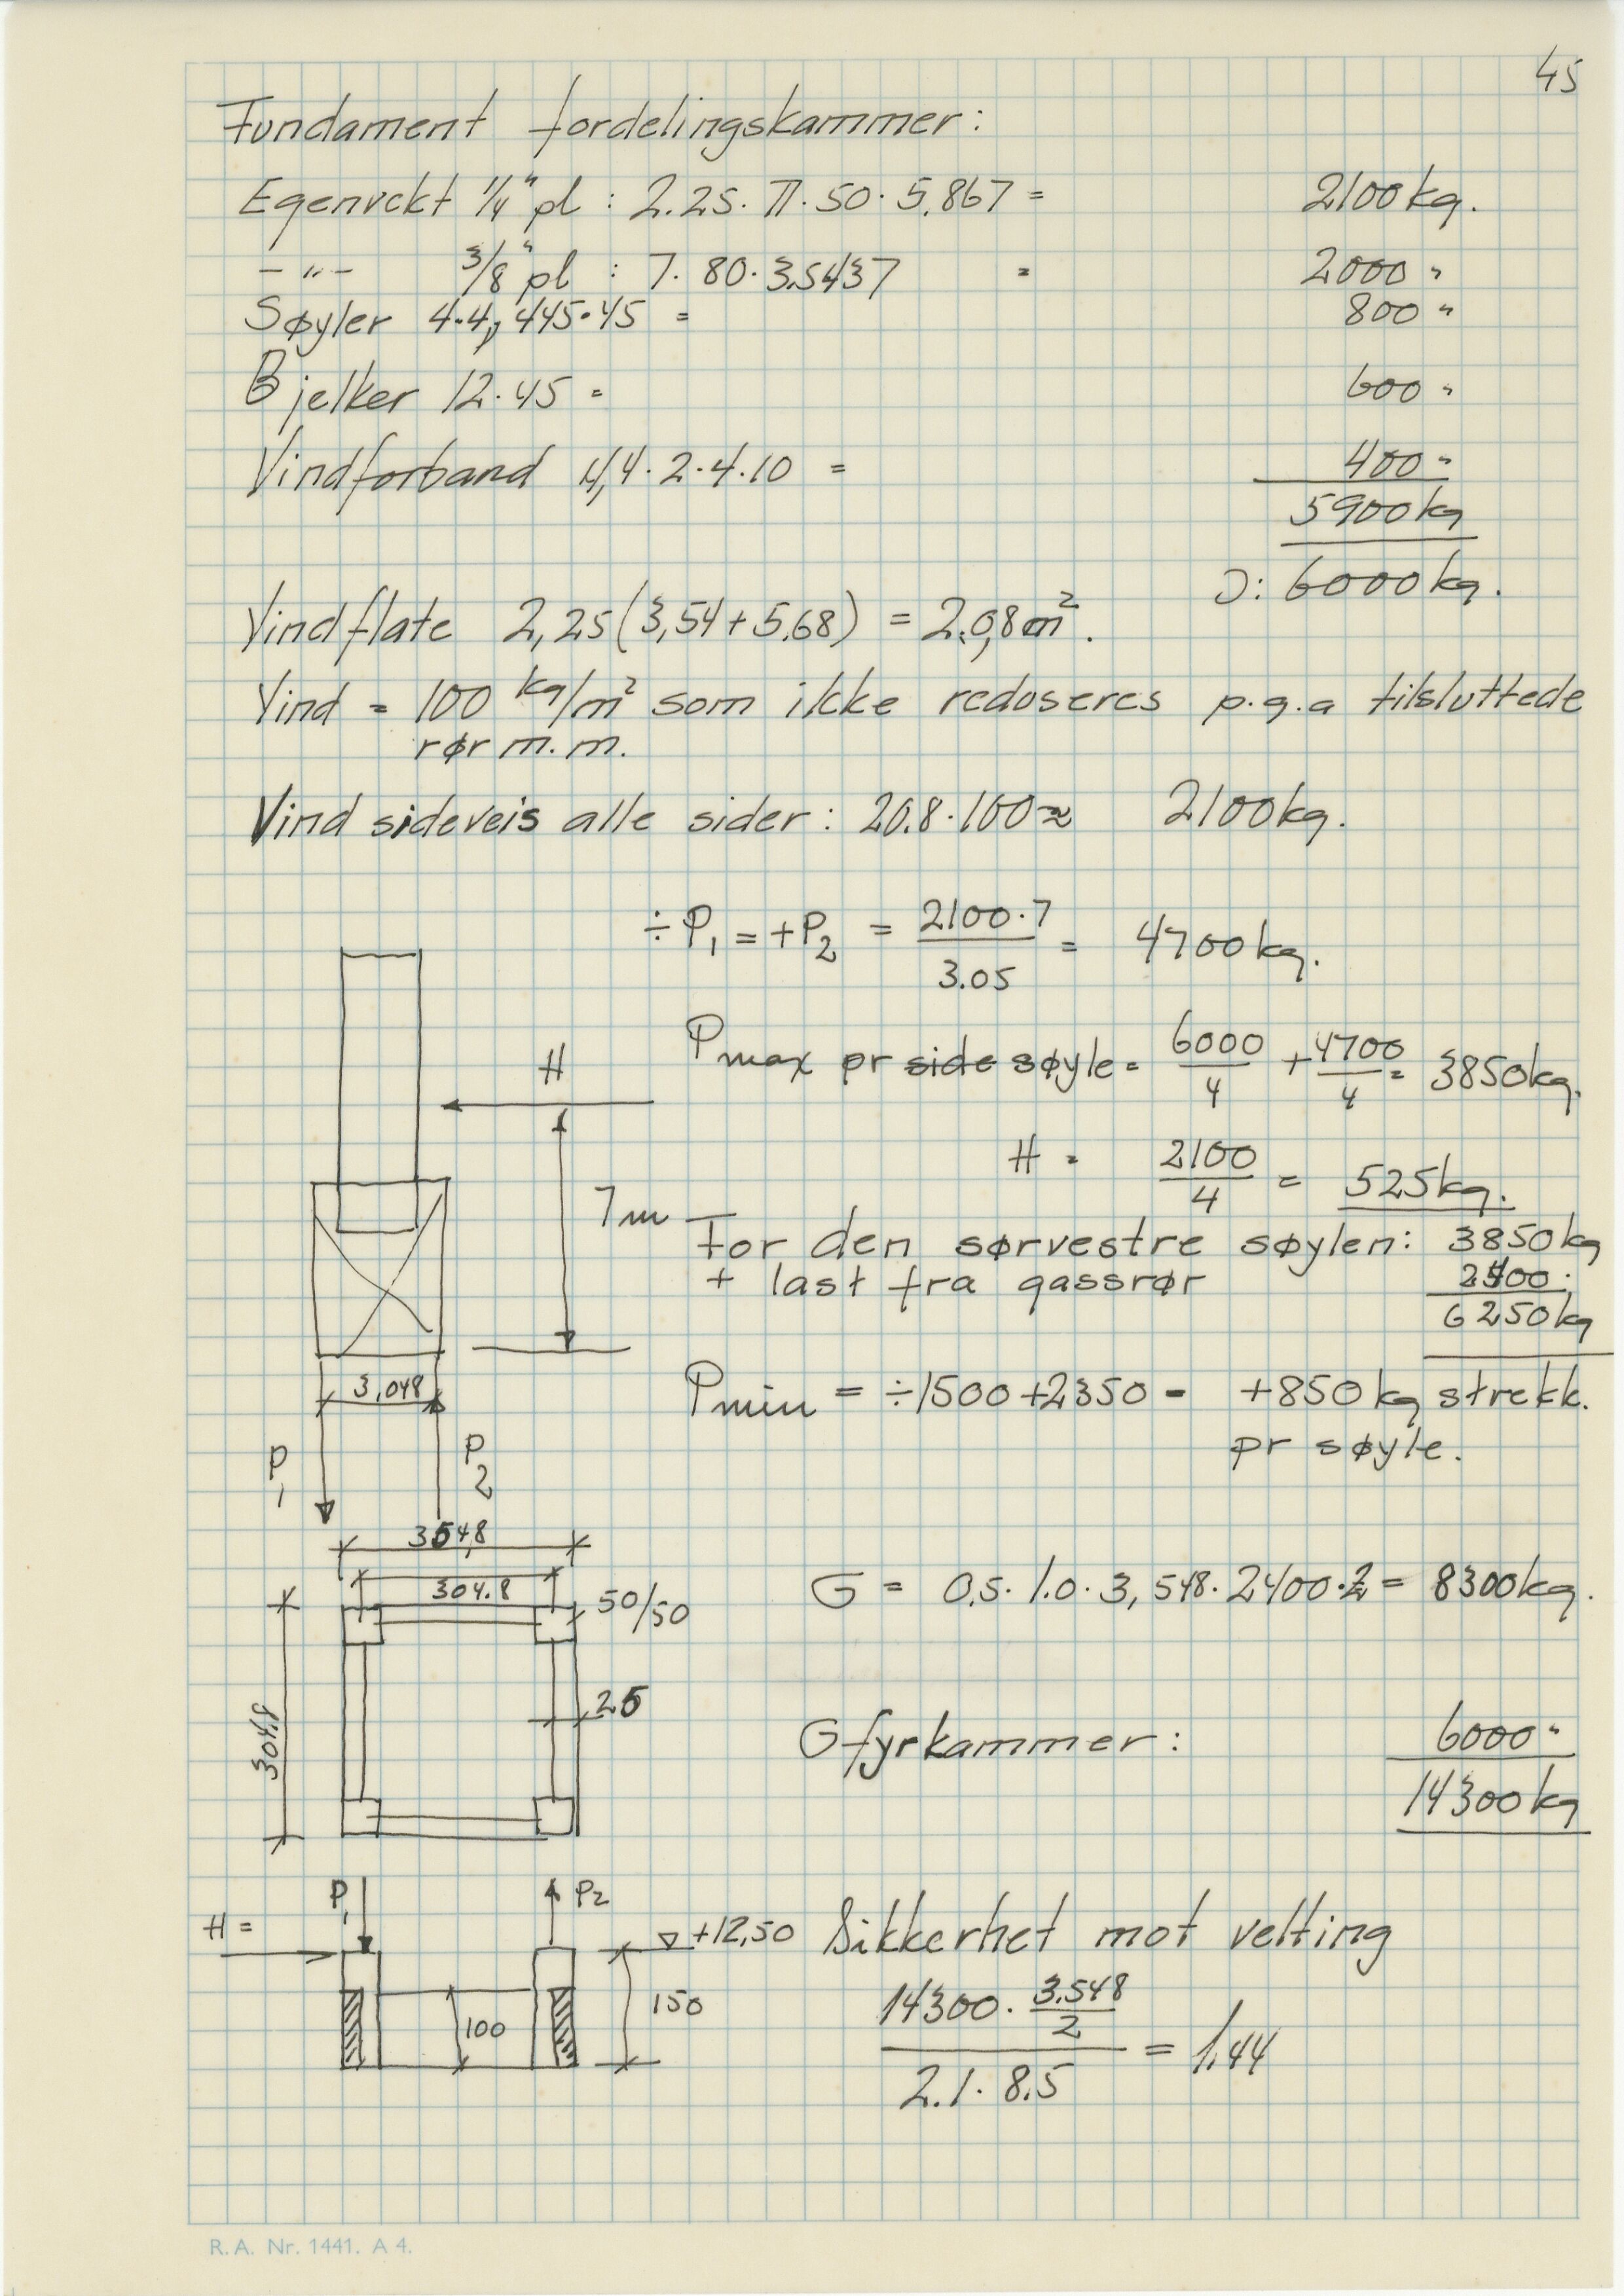 45
Fundament fordelingskammer:
Egenvekt 1/4" pl : 2.25. π. 50. 5.867 = 2100 kg.
- " - 3/8" pl : 7. 80. 3.5437 = 2000 "
Søyler 4.4,445.45 = 800 "
Bjelker 12.45 = 600 "
Vindforband 4,4.2.4.10 = 400 "
5900 kg
Ɔ: 6000 kg.
Vindflate 2,25(3,54+5.68) = 20,8 m².
Vind = 100 kg/m² som ikke reduseres p.g.a tilsluttede
rør m.m.
Vind sideveis alle sider : 20.8.100 ≈ 2100 kg.
÷ P₁ = +P₂ = 2100.7 / 3.05 = 4700 kg.
Pmax pr side søyle = 6000/4 + 4700/4 = 3850 kg.
H
H = 2100/4 = 525 kg.
7m
For den sørvestre søylen: 3850 kg
+ last fra gassrør 2400 "
6250 kg
3,048
Pmin = ÷1500 +2350 = +850 kg strekk.
pr søyle.
P₁ P₂
354,8
304.8
50/50
G = 0.5. 1.0. 3,548. 2400.2 = 8300 kg.
25
304.8
G fyrkammer: 6000 "
14300 kg
P₁ P₂
H =
+12,50
Sikkerhet mot velting
100
150
14300. 3.548/2 / 2.1. 8.5 = 1,44
R. A. Nr. 1441. A 4.